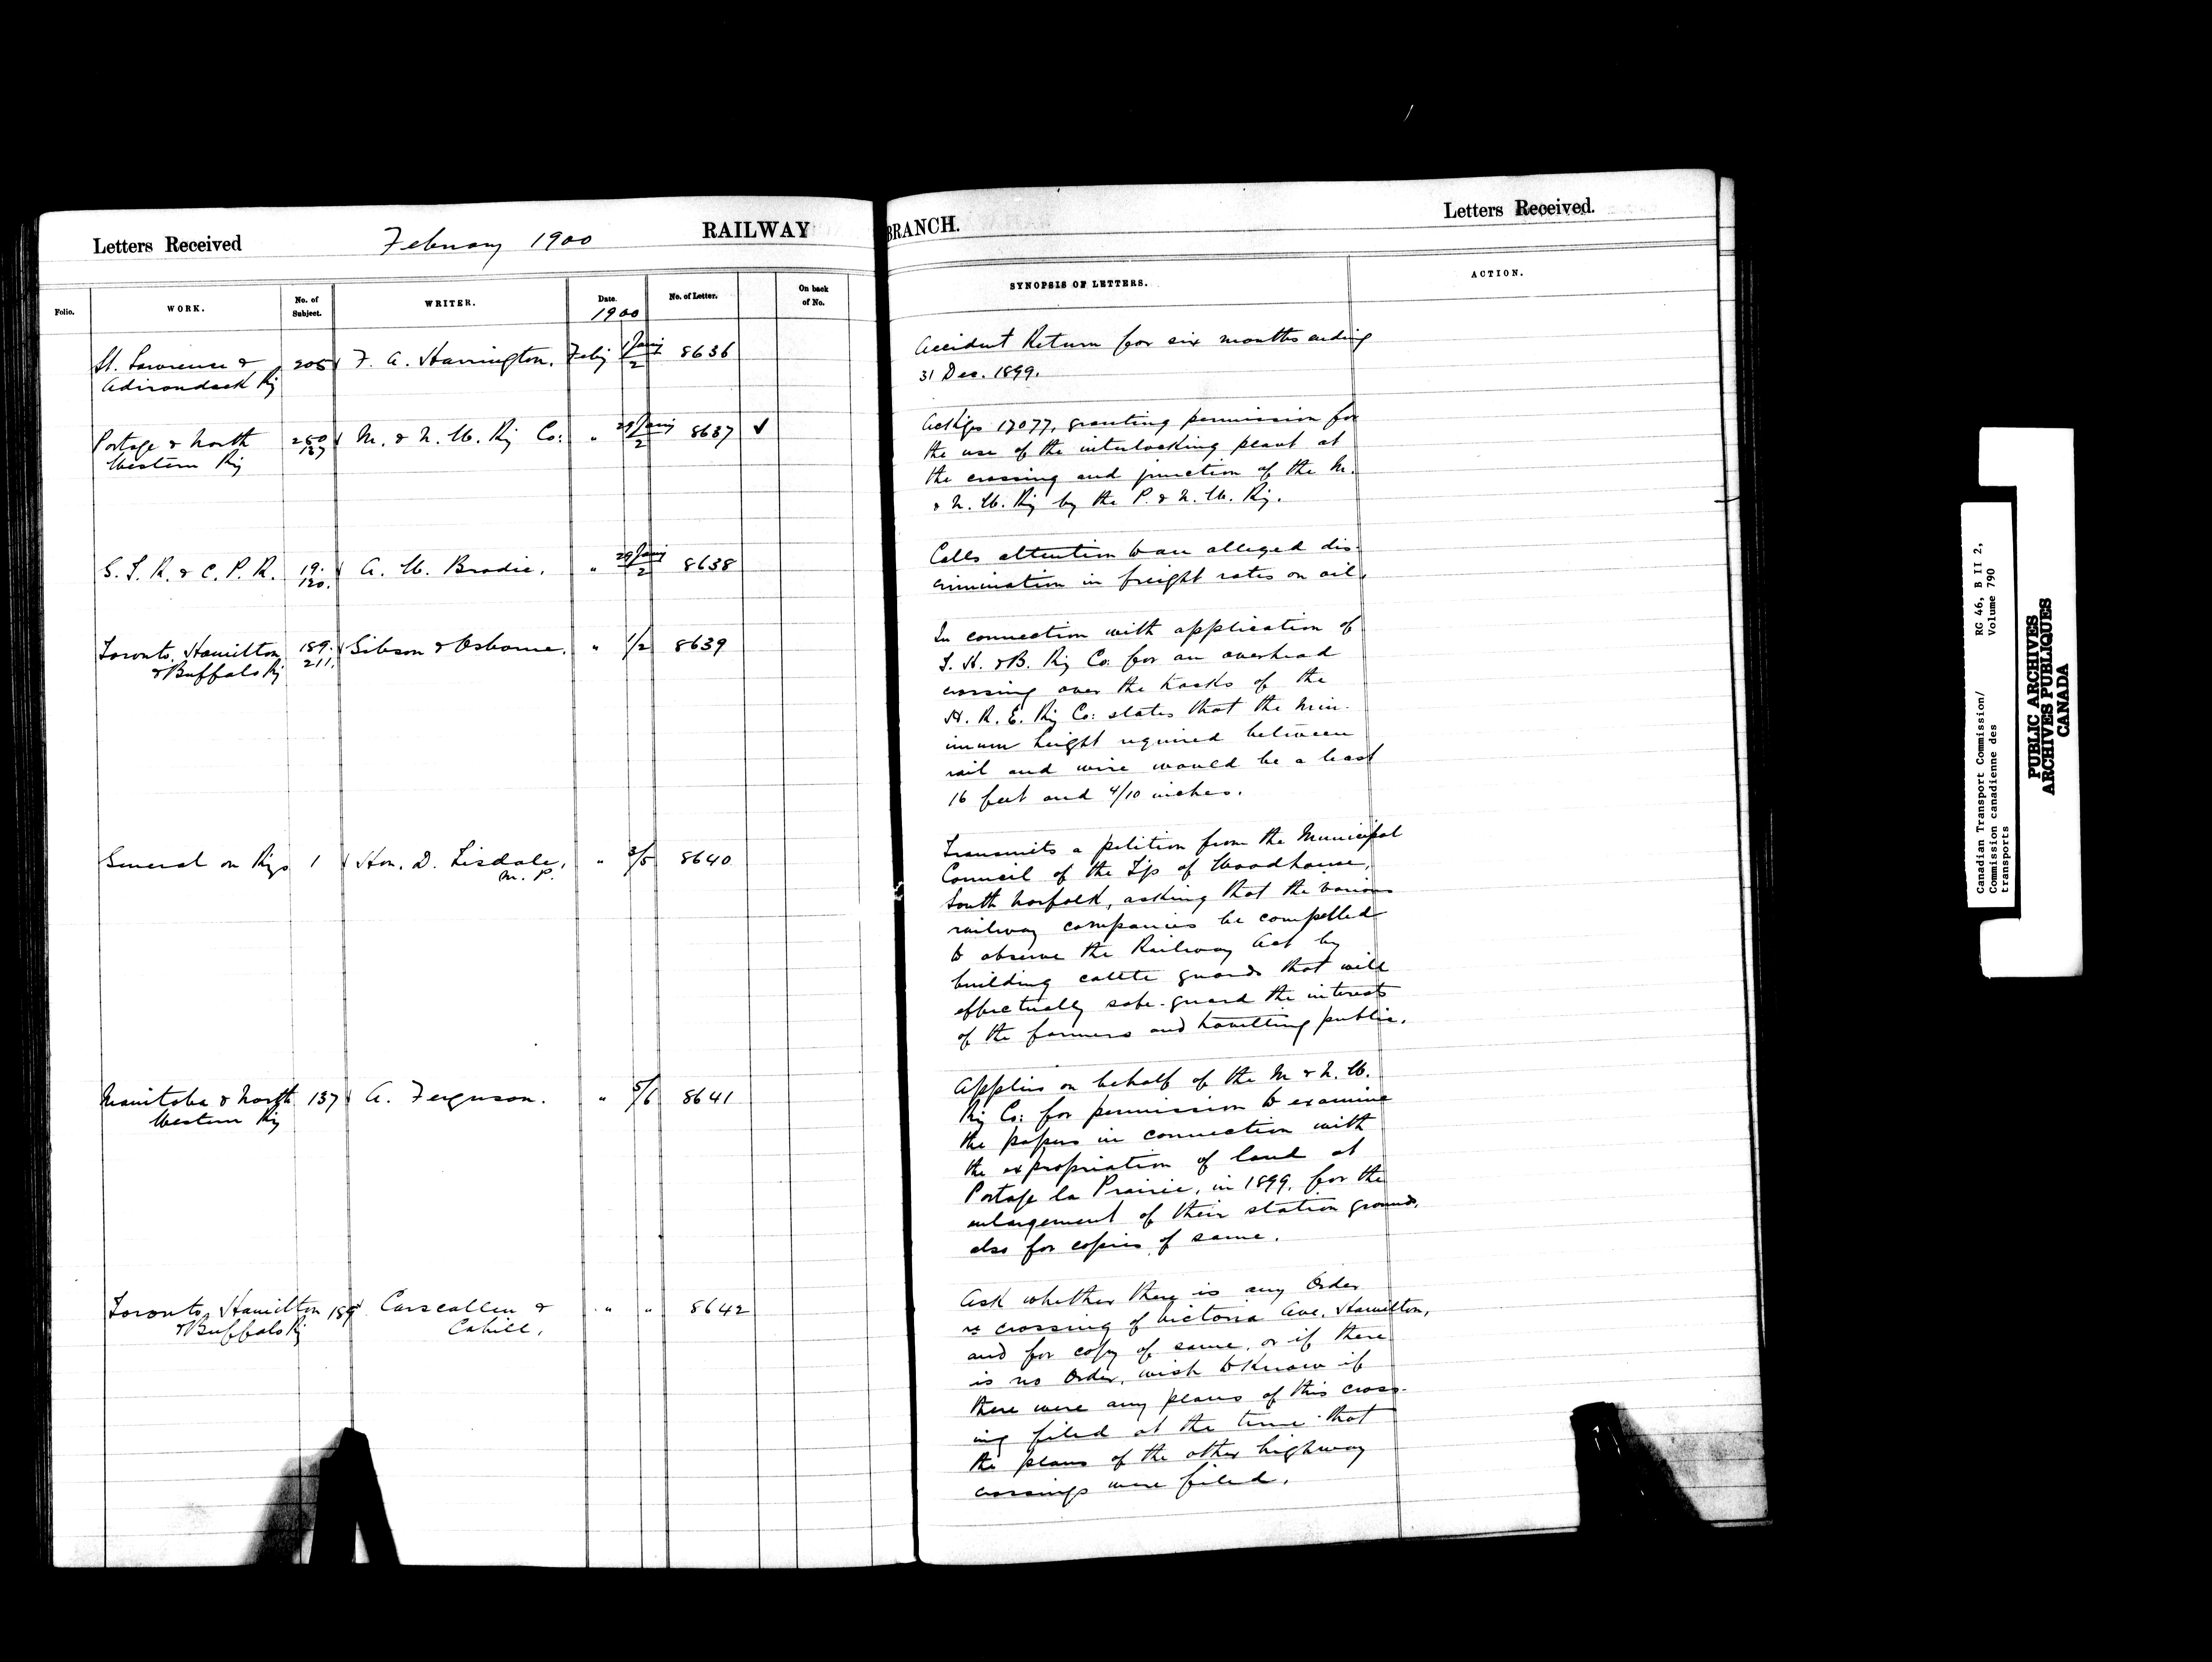 Letters Received
February 1900
RAILWAY
BRANCH.
Letters Received.
Folio.
WORK.
No. of Subject.
WRITER.
Date.
1900
No. of Letter.
On back of No.
SYNOPSIS OF LETTERS.
ACTION.
St. Lawrence &
Adirondack Ry
205
F. A. Harrington.
Feby
1 Jany
2
8636
Accident Return for six months ending
31 Dec. 1899.
Portage & North
Western Ry
280
137
M. & N. W. Ry Co:
"
29 Jany
2
8637 ✓
Ackgs 17077, granting permission for
the use of the interlocking plant at
the crossing and junction of the M.
& N. W. Ry by the P. & N. W. Ry.
G. T. R. & C. P. R.
19.
120.
A. W. Brodie.
"
29 Jany
2
8638
Calls attention to an alleged dis-
crimination in freight rates on oil.
Toronto, Hamilton
& Buffalo Ry
189.
211.
Gibson & Osborne.
" 1/2
8639
In connection with application of
T. H. & B. Ry Co. for an overhead
crossing over the tracks of the
H. R. E. Ry Co: states that the min-
imum height required between
rail and wire would be a least
16 feet and 4/10 inches.
General on Rys
1
Hon. D. Tisdale,
M. P.
" 3/5
8640
Transmits a petition from the Municipal
Council of the Tp of Woodhouse,
South Norfolk, asking that the various
railway companies be compelled
to observe the Railway Act by
building cattle guards that will
effectually safe-guard the interests
of the farmers and travelling public.
Manitoba & North
Western Ry
137
A. Ferguson.
" 5/6
8641
Applies on behalf of the M & N. W.
Ry Co: for permission to examine
the papers in connection with
the expropriation of land at
Portage la Prairie, in 1899, for the
enlargement of their station grounds,
also for copies of same.
Toronto, Hamilton
& Buffalo Ry
189
Carscallen &
Cahill,
" "
8642
Ask whether there is any Order
re crossing of Victoria Ave. Hamilton,
and for copy of same, or if there
is no Order, wish to know if
there were any plans of this cross-
ing filed at the time that
the plans of the other highway
crossings were filed.
Canadian Transport Commission/
Commission canadienne des
transports
RG 46, B II 2,
Volume 790
PUBLIC ARCHIVES
ARCHIVES PUBLIQUES
CANADA